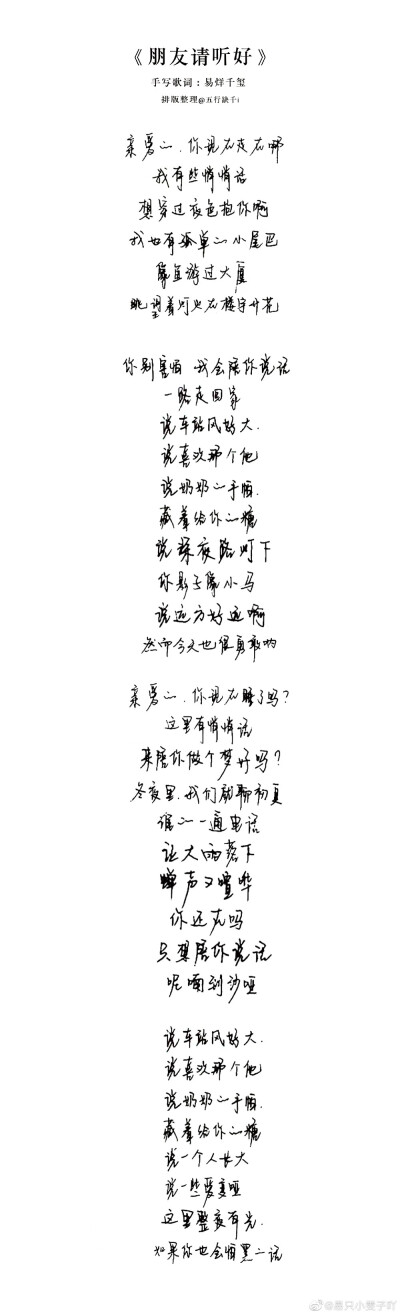 《朋友请听好》
手写歌词：易烊千玺
排版整理@五行缺千i
亲爱的，你现在走在哪
我有些悄悄话
想穿过夜色抱你啊
我也有孤单的小尾巴
像鱼游过大厦
眺望着灯火在楼宇开花
你别害怕 我会陪你说话
一路走回家
说车站风好大.
说喜欢那个他
说奶奶的手帕.
藏着给你的糖
说深夜路灯下
你影子像小马
说远方好远啊
然而今天也很勇敢哟
亲爱的，你现在睡了吗？
这里有悄悄话
来陪你做个梦好吗？
冬夜里，我们就聊初夏
谁的一通电话
让大雨落下
蝉声又喧哗
你还在吗
只想陪你说话
呢喃到沙哑
说车站风好大.
说喜欢那个他
说奶奶的手帕.
藏着给你的糖
说一个人长大
说一些爱变哑
这里整夜有光.
如果你也会怕黑的话
@是只小雯子吖